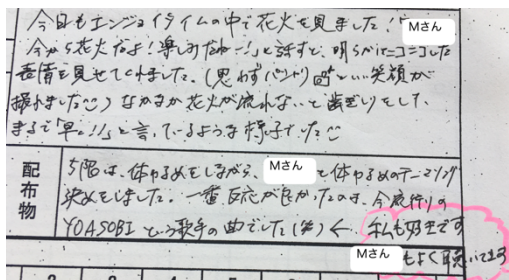 今日もエンジョイタイムの中で花火を見ました！「Mさん
今から花火だよ！楽しみだねー！」と話すと、明らかにニコニコした
表情を見せてくれました。（思わずパシャリ📷 いい笑顔が
撮れました☺）なかなか花火が流れないと歯ぎしりをして、
まるで「早く!!」と言っているような様子でした☺
配布物
5階は、体ゆるめをしながら、Mさんと体ゆるめのテーマソング
決めをしました。一番反応が良かったのは、今流行りの
YOASOBIという歌手の曲でした（笑）← 私も好きです
Mさんもよく聴いてます